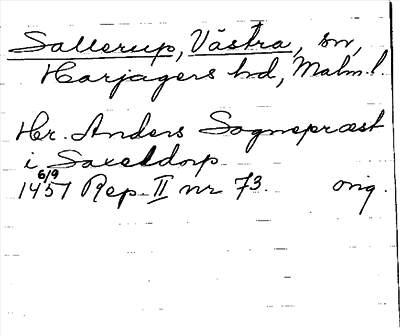 Sallerup, Västra, sn,
Harjagers hd, Malm. l.
Hr. Anders Sognepræst
i Saxeldorp
6/9
1457 Rep. II nr 73. orig.